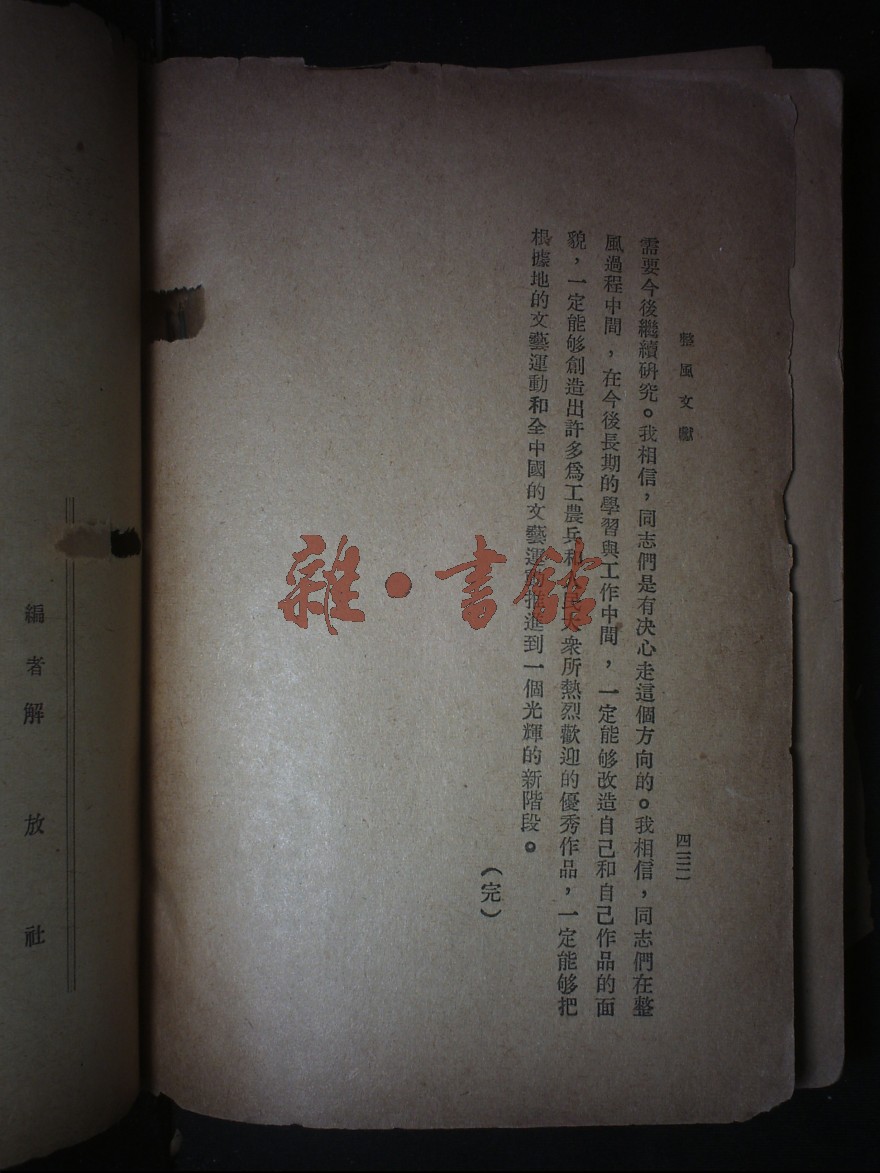 整風文獻
四三二
需要今後繼續研究。我相信，同志們是有决心走這個方向的。我相信，同志們在整
風過程中間，在今後長期的學習與工作中間，一定能够改造自己和自己作品的面
貌，一定能够創造出許多爲工農兵和人民大衆所熱烈歡迎的優秀作品，一定能够把
根據地的文藝運動和全中國的文藝運動推進到一個光輝的新階段。
（完）
編者解放社
雜·書館